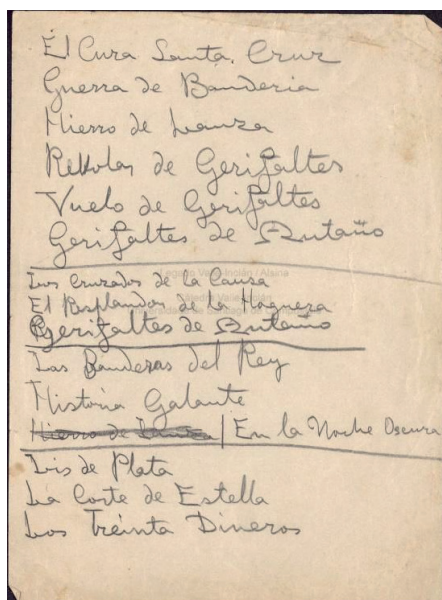 El Cura Santa Cruz
Guerra de Banderia
Hierro de Lanza
Revolar de Gerifaltes
Vuelo de Gerifaltes
Gerifaltes de Antaño
Legado Valle-Inclán / Alsina
Los Cruzados de la Causa
El Resplandor de la Hoguera
Gerifaltes de Antaño
Las Banderas del Rey
Historia Galante
Hierro de Lanza | En la Noche Oscura
Lis de Plata
La Corte de Estella
Los Treinta Dineros